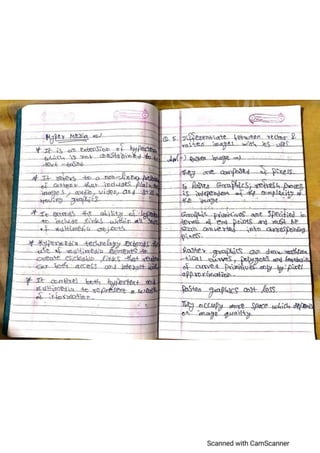 Hyper Media
* It is an extension of hypertext
which is not constrained to be
text-based
* It refers to a non-linear
of content that includes plain
images, audio, video, and
* It expands the ability of
to include links within
of multimedia objects.
* Hypermedia technology extends the
use of multimedia elements to
create clickable links that
can both access and interact with
* It contains both hypertext and
multimedia to represent a
of information.
Q. 5. Differentiate between vector &
raster images with its uses
Raster image
They are composed of pixels.
In Raster Graphics, refresh process
is independent of the complexity of
the image
Graphic primitives are specified in
terms of end points and must be
scan converted into corresponding
pixels.
Raster graphics can draw mathema-
-tical curves, polygons and boundaries
of curved primitives only by pixel
approximation.
Raster graphics cost less.
They occupy more space which depends
on image quality.
Scanned with CamScanner